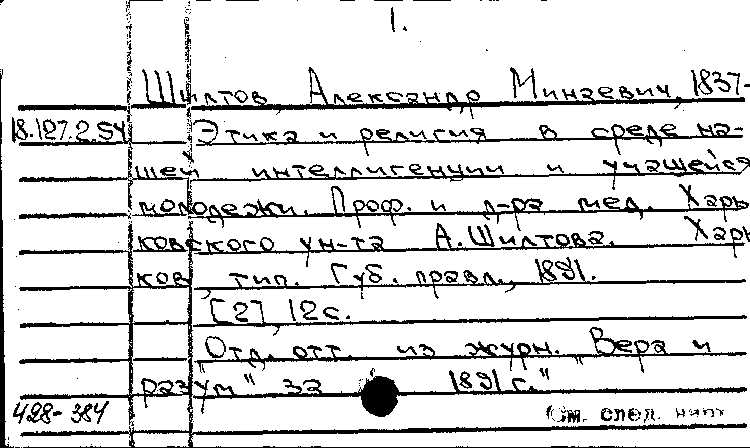 1.
Шилтов, Александр Минаевич, 1837-
18.127.2.54 Этика и религия в среде на-
шей интеллигенции и учащейся
молодежи. Проф. и д-ра мед. Харь
ковского ун-та А. Шилтова. Харь
ков, тип. Губ. правл., 1891.
[2], 12 с.
"Отд. отт. из журн. "Вера и
разум" за 1891 г."
428-384 См. след.